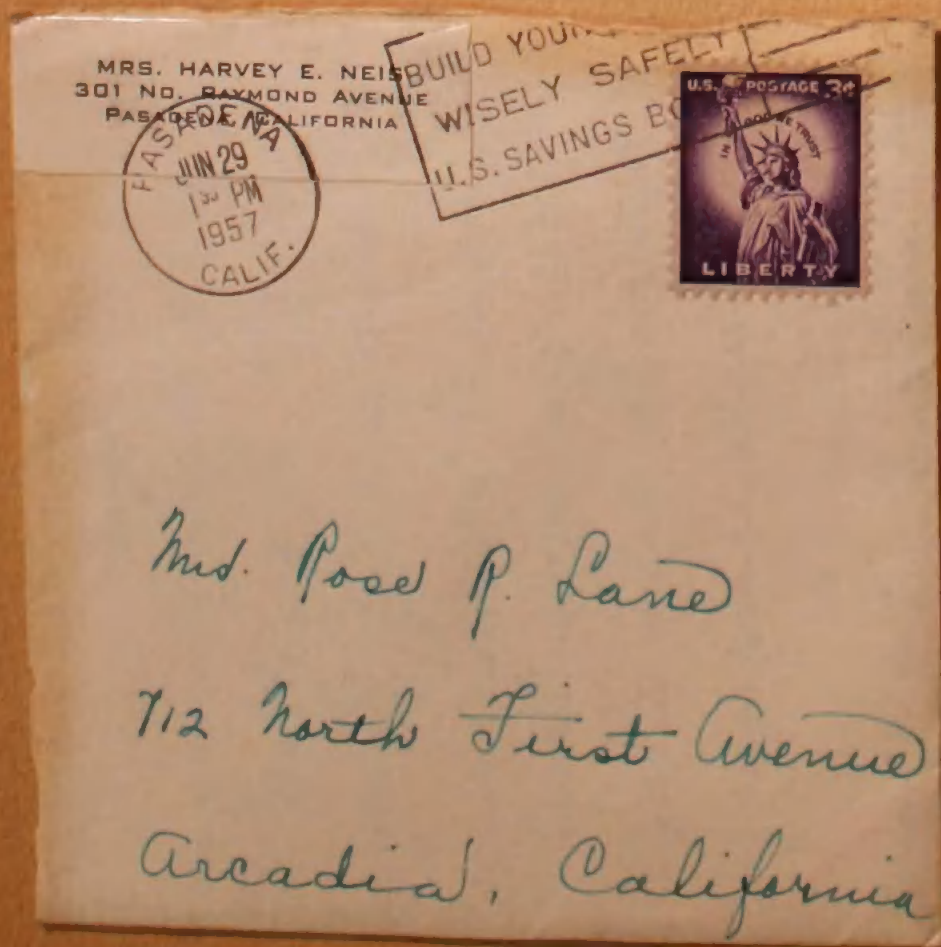 MRS. HARVEY E. NEIS
301 NO. RAYMOND AVENUE
PASADENA, CALIFORNIA
PASADENA
JUN 29
1 30 PM
1957
CALIF.
BUILD YOUR
WISELY SAFELY
U.S. SAVINGS BO
U.S. POSTAGE 3¢
IN GOD WE TRUST
LIBERTY
Mrs. Rose R. Lane
712 North First Avenue
Arcadia, California